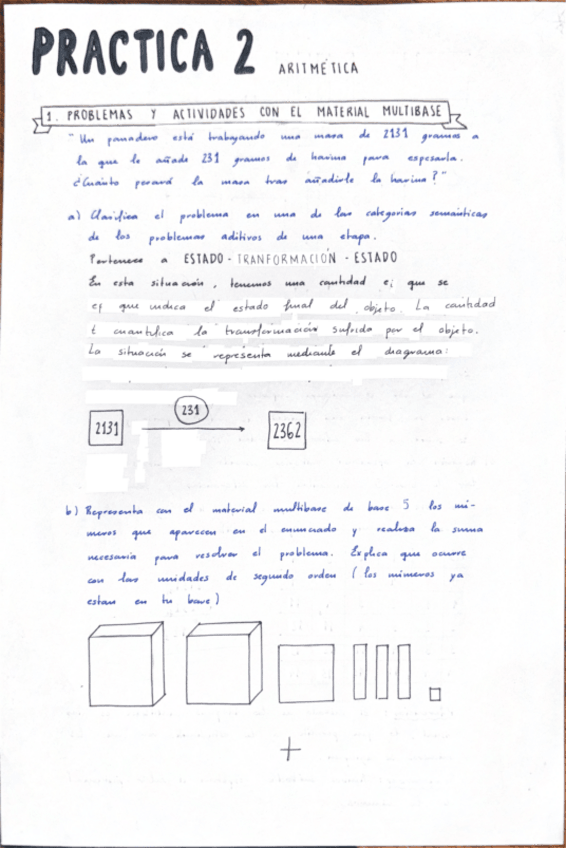 PRACTICA 2 ARITMÉTICA
1. PROBLEMAS Y ACTIVIDADES CON EL MATERIAL MULTIBASE
"Un panadero está trabajando una masa de 2131 gramos a
la que le añade 231 gramos de harina para espesarla.
¿Cuánto pesará la masa tras añadirle la harina?"
a) Clasifica el problema en una de las categorías semánticas
de los problemas aditivos de una etapa.
Pertenece a ESTADO - TRANFORMACIÓN - ESTADO
En esta situación, tenemos una cantidad ei que se
ef que indica el estado final del objeto. La cantidad
t cuantifica la transformación sufrida por el objeto.
La situación se representa mediante el diagrama:
231
2131
2362
b) Representa con el material multibase de base 5 los nú-
meros que aparecen en el enunciado y realiza la suma
necesaria para resolver el problema. Explica que ocurre
con las unidades de segundo orden (los números ya
estan en tu base)
+